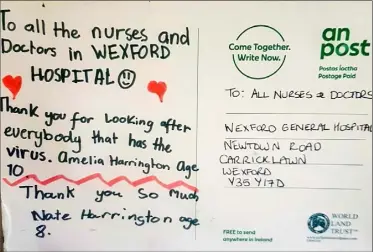 To all the nurses and
Doctors in WEXFORD
HOSPITAL
Thank you for Looking after
everybody that has the
virus. Amelia Harrington Age
10
Thank you so Much
Nate Harrington age
8.
Come Together.
Write Now.
an
post
Postas íoctha
Postage Paid
TO: ALL NURSES & DOCTORS
WEXFORD GENERAL HOSPITAL
NEWTOWN ROAD
CARRICKLAWN
WEXFORD
Y35 Y17D
FREE to send
anywhere in Ireland
WORLD
LAND
TRUST™